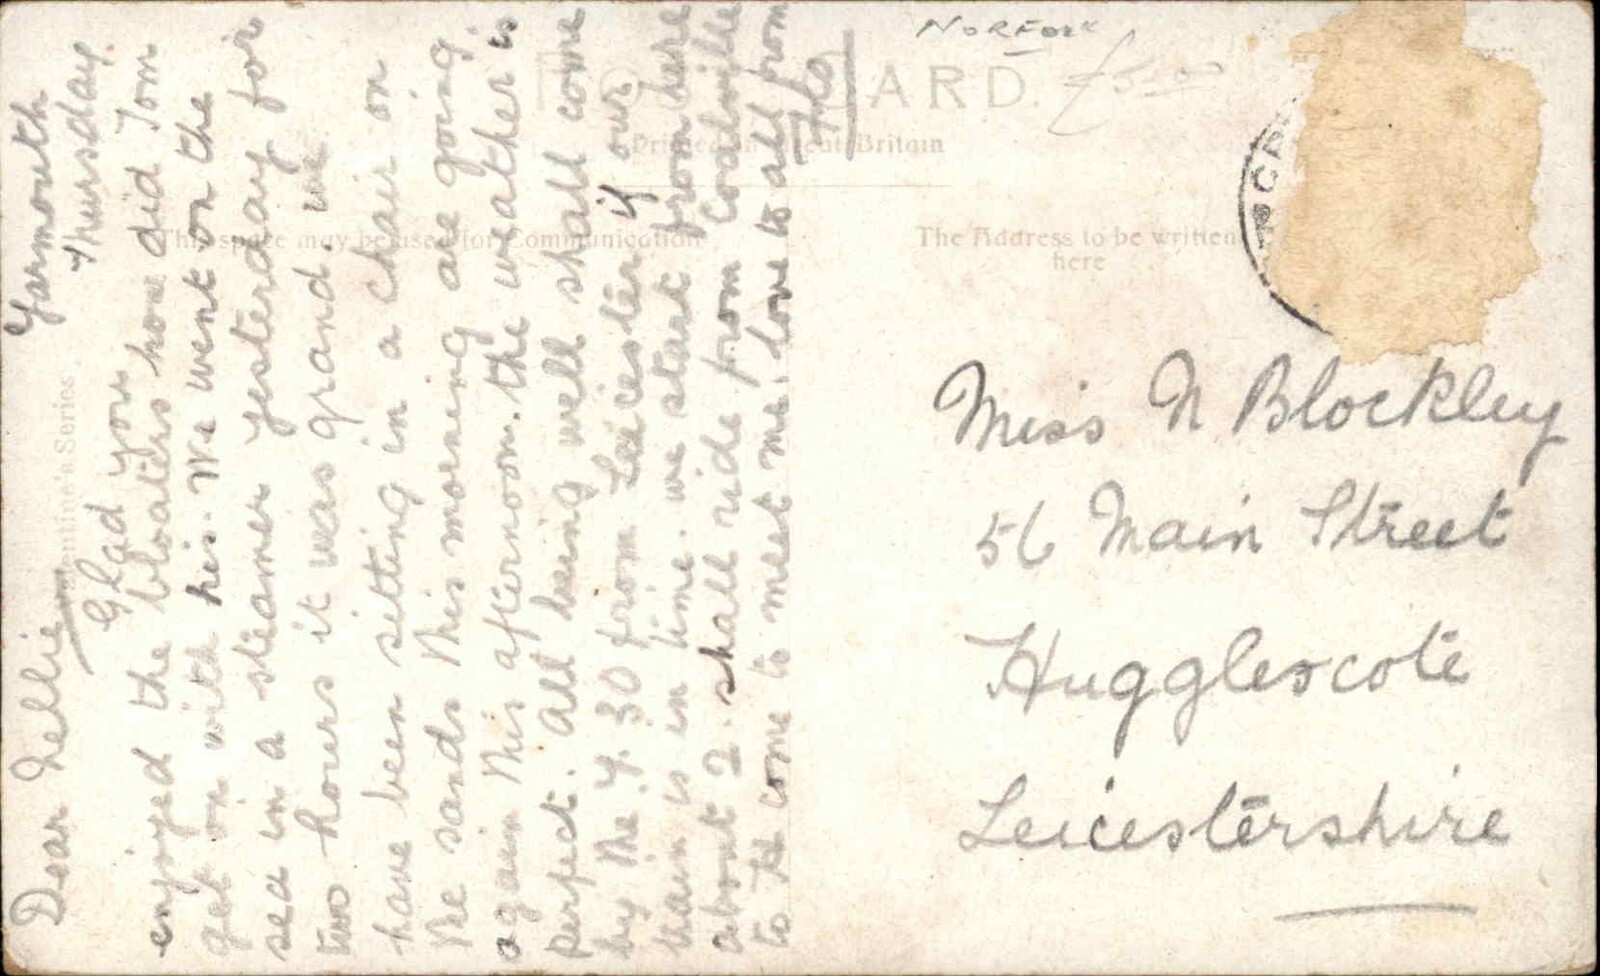 NORFOLK
£5.00
POST CARD.
Printed in Great Britain
This space may be used for Communication
The Address to be written
here
Valentine's Series.
Yarmouth
Thursday.
Dear Nellie
Glad you
enjoyed the bloaters how did Tom
get on with his. We went on the
sea in a steamer yesterday for
two hours it was grand. we
have been sitting in a chair on
the sands this morning are going
again this afternoon. the weather is
perfect. All being well shall come
by the 4.30 from Leicester if our
train is in time. we start from here
about 2. shall ride from Coalville
to H come to meet me. love to all from
Flo
Miss N Blockley
56 Main Street
Hugglescote
Leicestershire